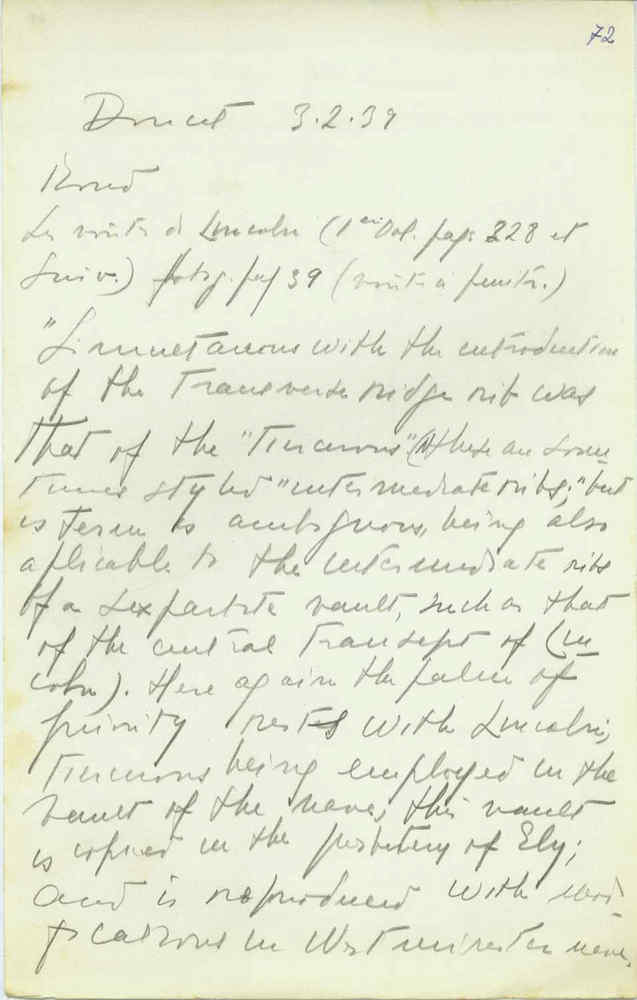 72
Doucet 3.2.39
Bond
Les voûtes de Lincoln (1er Vol. pag. 328 et
suiv.) fotog. pag 39 (voûte à
"Simultaneous with the introduction
of the Transverse ridge rib was
that of the "Tiercerons" (these are some
times styled "intermediate ribs;" but
is term is ambiguous, being also
aplicable to the intermediate ribs
of a sexpartite vault, such as that
of the central Transept of Lin
coln). Here again the palm of
priority rests with Lincoln;
Tiercerons being employed in the
vault of the nave; this vault
is copied in the presbitery of Ely;
and is reproduced with modi
fications in Westminster nave.